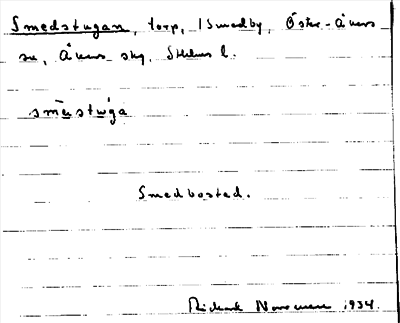 Smedstugan, torp, i Smedby, Öster-Åkers
sn, Åkers skg, Sthlms l.
smēstu̇ga
Smedbostad.
Rickard 1934.